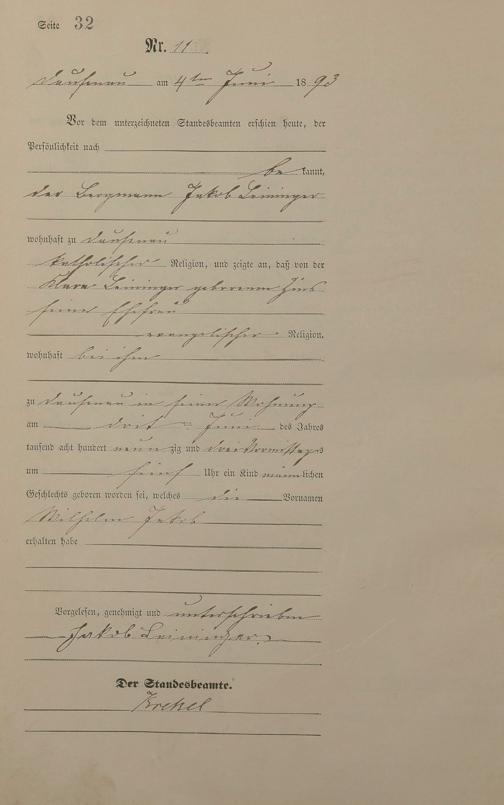 Seite 32
Nr. 11
Dausenau am 4ten Juni 1893
Vor dem unterzeichneten Standesbeamten erschien heute, der
Persönlichkeit nach
bekannt,
der Bergmann Jakob Leininger
wohnhaft zu Dausenau
katholischer Religion, und zeigte an, daß von der
Klara Leininger geborenen
seiner Ehefrau
evangelischer Religion,
wohnhaft bei ihm
zu Dausenau in seiner Wohnung
am drit Juni des Jahres
tausend acht hundert neunzig und drei Vormittags
um fünf Uhr ein Kind männlichen
Geschlechts geboren worden sei, welches die Vornamen
Wilhelm Jakob
erhalten habe
Vorgelesen, genehmigt und unterschrieben
Jakob Leininger.
Der Standesbeamte.
Krekel